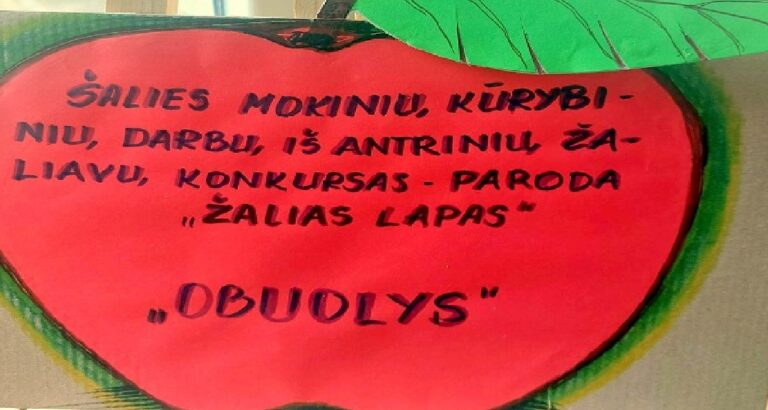 ŠALIES MOKINIŲ KŪRYBI-
NIŲ DARBŲ IŠ ANTRINIŲ ŽA-
LIAVŲ KONKURSAS - PARODA
„ŽALIAS LAPAS"
„OBUOLYS"